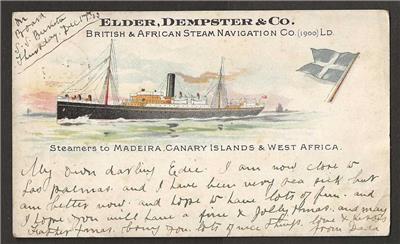 On
Board
S.S. Burutu
Thursday, Dec 17th 03
ELDER, DEMPSTER & CO.
BRITISH & AFRICAN STEAM NAVIGATION CO. (1900) LD.
Steamers to MADEIRA, CANARY ISLANDS & WEST AFRICA.
My own darling Edie. I am now close to
Las Palmas. and I have been very sea sick but
am better now. and hope to have lots of fun. and
I hope you will have a fine & Jolly Xmas. and may
Father Xmas. bring you lots of nice things. love & kisses
from Dada